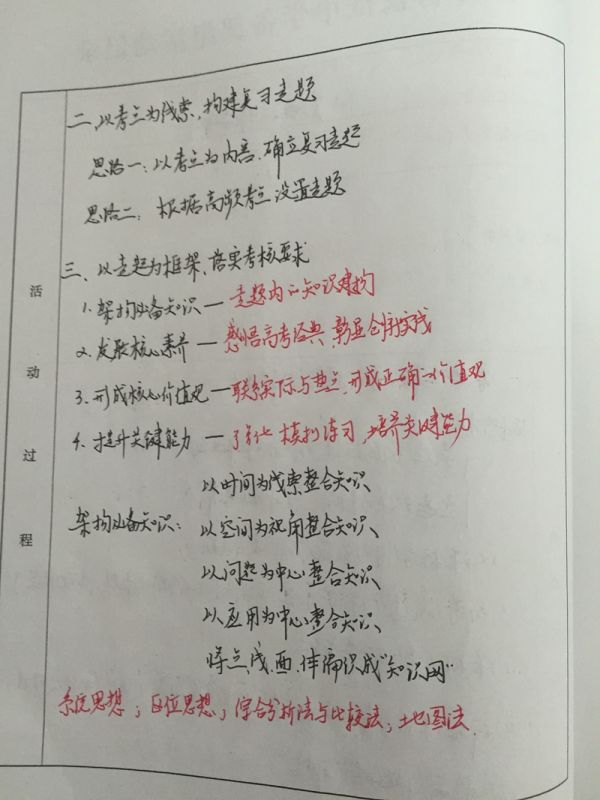 活动过程
二、以考点为线索,构建复习主题
思路一:以考点为内容,确立复习主题
思路二:根据高频考点设置主题
三、以主题为框架,落实考核要求
1.架构必备知识—主题内的知识建构
2.发展核心素养—感悟高考经典,彰显创新实践
3.形成核心价值观—联系实际与热点,形成正确的价值观
4.提升关键能力—强化模拟练习,培养关键能力
以时间为线索整合知识、
架构必备知识:以空间为视角整合知识、
以问题为中心整合知识、
以应用为中心整合知识、
将点、线、面、体编织成"知识网"
系统思想;区位思想;综合分析法与比较法;地图法